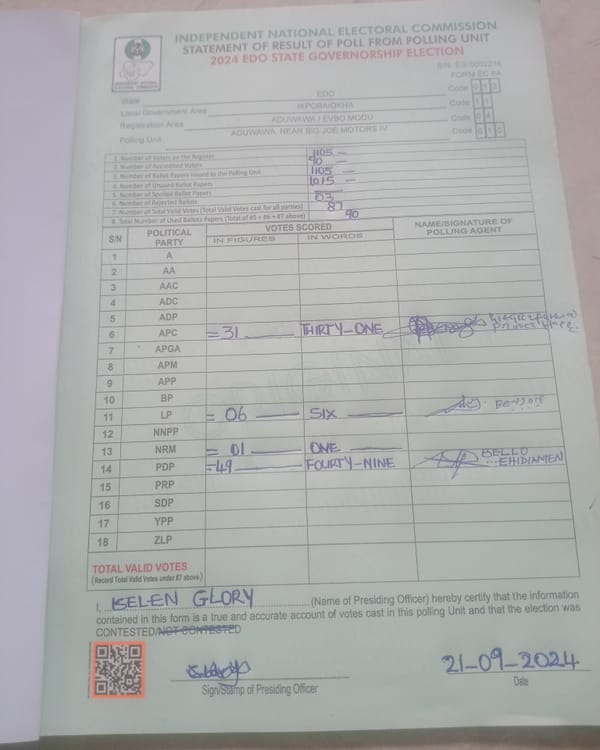 INDEPENDENT NATIONAL ELECTORAL COMMISSION
STATEMENT OF RESULT OF POLL FROM POLLING UNIT
2024 EDO STATE GOVERNORSHIP ELECTION
FORM EC 8A
State EDO Code 0 1 2
Local Government Area IKPOBA/OKHA Code 1 1
Registration Area ADUWAWA / EVBO MODU Code 0 4
Polling Unit ADUWAWA, NEAR BIG JOE MOTORS IV Code 0 1 0
1. Number of Voters on the Register 1105 —
2. Number of Accredited Voters 90 —
3. Number of Ballot Papers Issued to the Polling Unit 1105 —
4. Number of Unused Ballot Papers 1015 —
5. Number of Spoiled Ballot Papers —
6. Number of Rejected Ballots 03
7. Number of Total Valid Votes (Total Valid Votes cast for all parties) 87
8. Total Number of Used Ballots Papers (Total of #5 + #6 + #7 above) 90
S/N POLITICAL PARTY VOTES SCORED NAME/SIGNATURE OF POLLING AGENT
IN FIGURES IN WORDS
1 A
2 AA
3 AAC
4 ADC
5 ADP
6 APC =31 THIRTY-ONE
7 APGA
8 APM
9 APP
10 BP
11 LP = 06 SIX
12 NNPP
13 NRM = 01 ONE
14 PDP =49 FOURTY-NINE BELLO EHIDIAMEN
15 PRP
16 SDP
17 YPP
18 ZLP
TOTAL VALID VOTES
(Record Total Valid Votes under #7 above)
I, ISELEN GLORY (Name of Presiding Officer) hereby certify that the information
contained in this form is a true and accurate account of votes cast in this polling Unit and that the election was
CONTESTED/NOT CONTESTED
Sign/Stamp of Presiding Officer
21-09-2024
Date